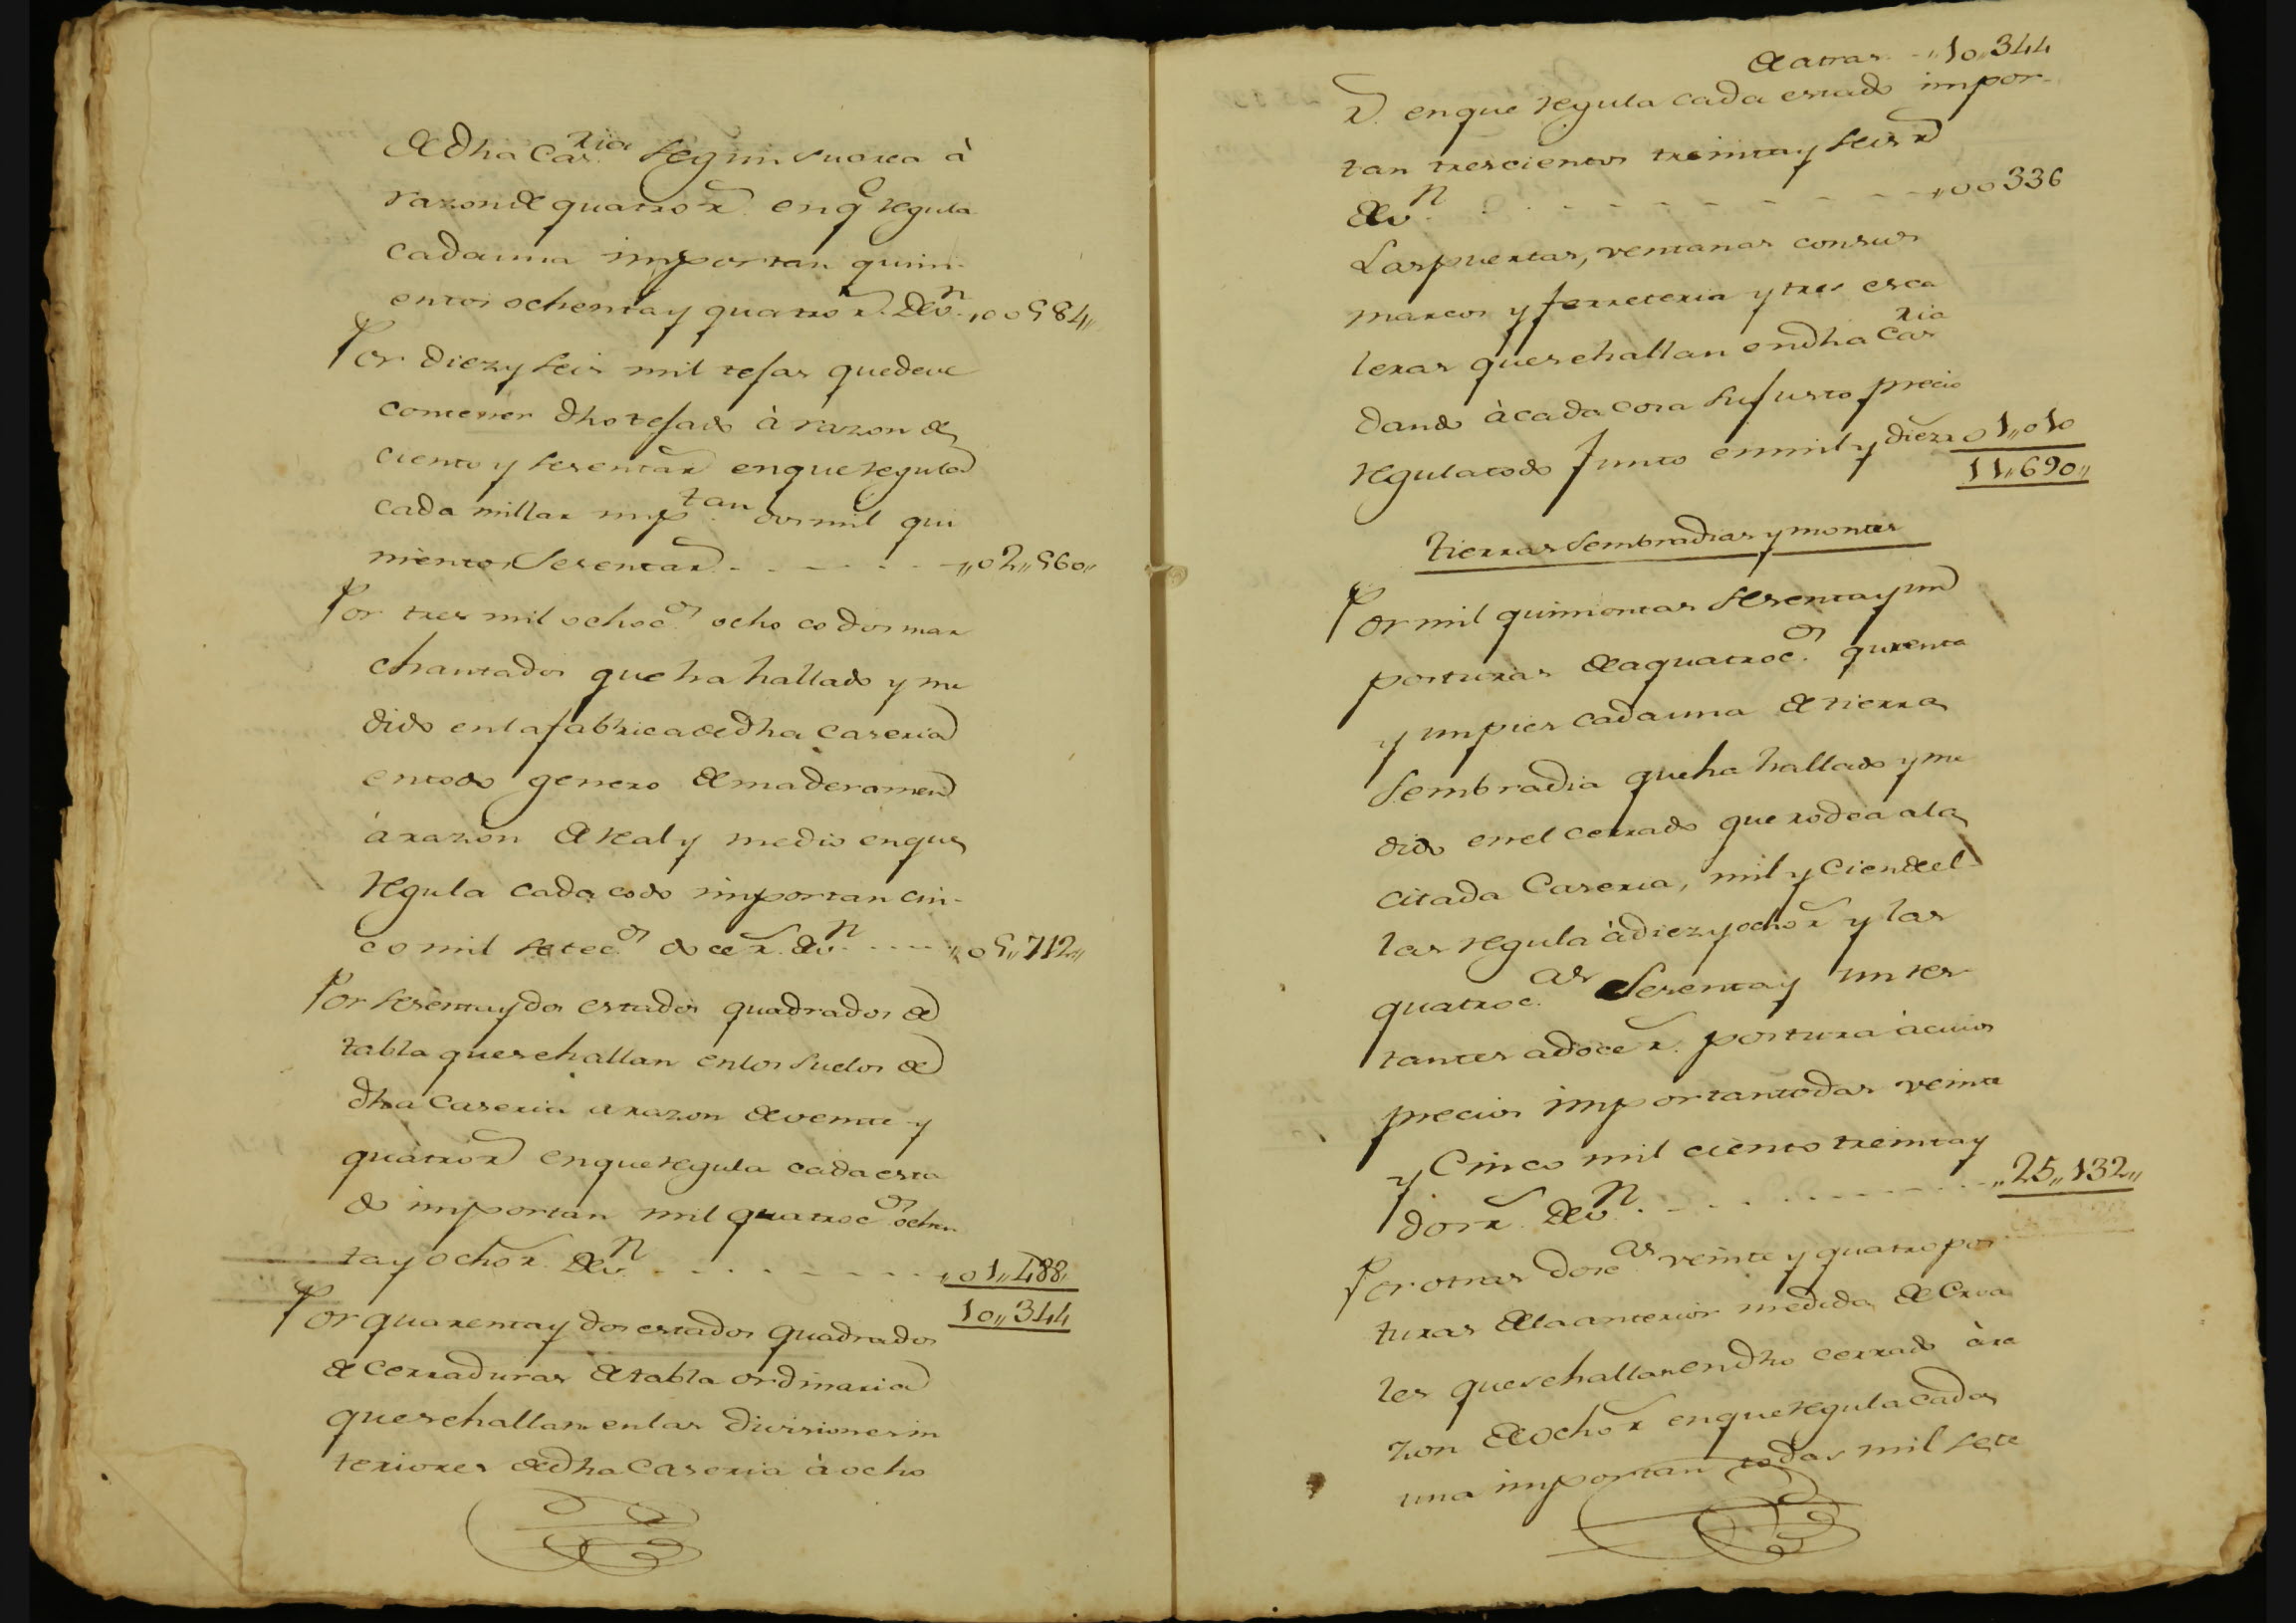 de dha Cas.ria segun su area à
razon de quatro rs. en q.e regula
cada una importan quin-
entos ochenta y quatro rs. de v.n ,,00584,,
Por diez y seis mil tejas que deve
contener dho tejado à razon de
ciento y sesenta rs en que regula
cada millar imp.tan dos mil qui
nientos sesenta rs - - - - - ,,02,,560,,
Por tres mil ochoc.os ocho codos mar
chantados que ha hallado y me
dido en la fabrica de dha caseria
en todo genero de maderamen
à razon de real y medio en que
regula cada codo importan cin-
co mil setec.os doce rs. de v.n - - - ,,05,,712,,
Por sesenta y dos estados quadrados de
tabla que se hallan en los suelos de
dha Caseria a razon de veinte y
quatro rs en que regula cada esta
do importan mil quatroc.os ochen
ta y ocho rs. de v.n - - - - - - ,,01,,488,,
10,,344
Por quarenta y dos estados quadrados
de cerraduras de tabla ordinaria
que se hallan en las divisiones in
teriores de dha Caseria à ocho
De atras - ,,10,,344
rs. en que regula cada estado impor-
tan trescientos treinta y seis rs
de v.n - - - - - - - - - ,,00336
Las puertas, ventanas con sus
marcos y ferreteria y tres esca
leras que se hallan en dha Cas.ria
dando à cada cosa su justo precio
regula todo junto en mil y diez rs 01,,010
11,,690,,
Tierras sembradias y montes
Por mil quinientas sesenta y un
posturas de a quatroc.os quarenta
y un pies cada una de tierra
sembradia que ha hallado y me
dido en el cerrado que rodea a la
citada Caseria, mil y cien de el-
las regula à diez y ocho rs y las
quatroc.as sesenta y un res-
tantes a doce rs. postura à cuios
precios importan todas veinte
y cinco mil ciento treinta y
dos rs. de v.n - - - - - - - ,,25,,132,,
Por otras dosc.as veinte y quatro pos
turas de la anterior medida de erva
les que se hallan en dho cerrado à ra
zon de ocho rs en que regula cada
una importan todas mil sete